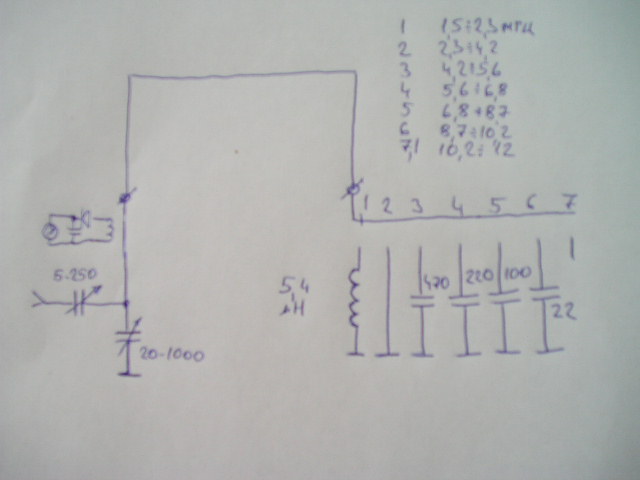 1 1,5÷2,3 мгц
2 2,3÷4,2
3 4,2÷5,6
4 5,6÷6,8
5 6,8÷8,7
6 8,7÷10,2
7,1 10,2÷12
1 2 3 4 5 6 7
5-250
20-1000
5,4
мН
470 220 100
22